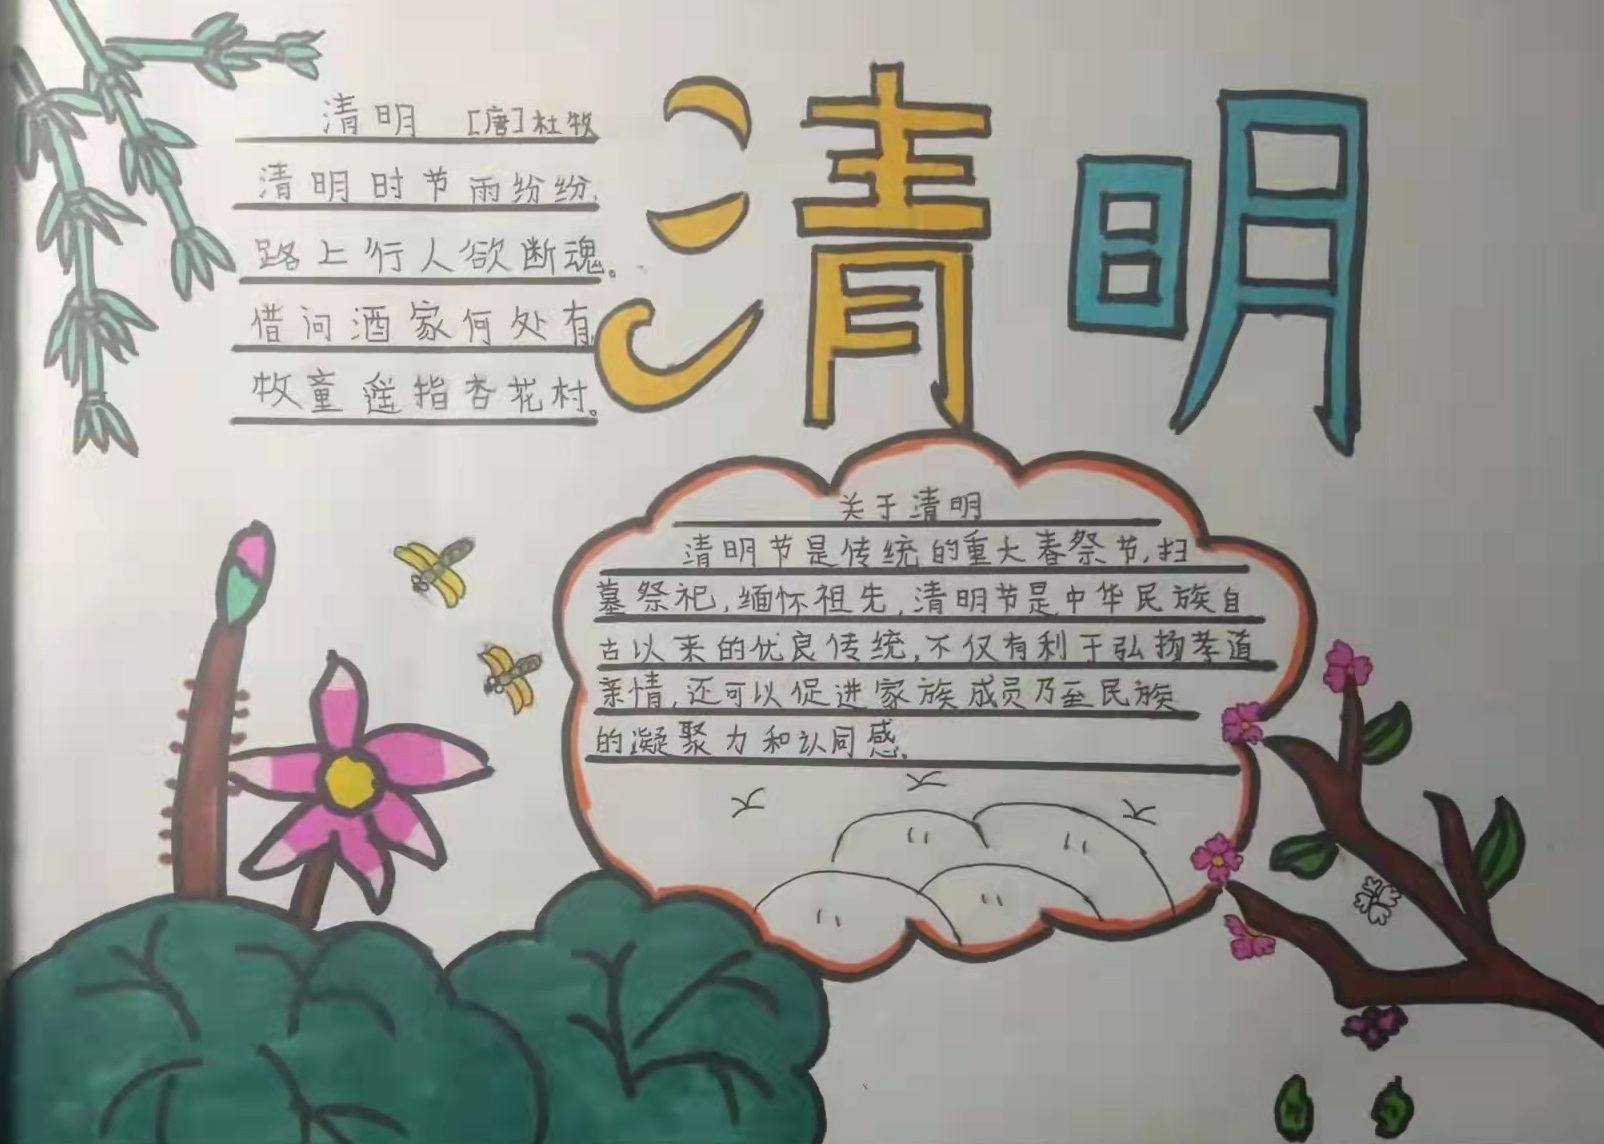 清明 [唐]杜牧
清明时节雨纷纷,
路上行人欲断魂。
借问酒家何处有
牧童遥指杏花村。
清明
关于清明
清明节是传统的重大春祭节,扫
墓祭祀,缅怀祖先,清明节是中华民族自
古以来的优良传统,不仅有利于弘扬孝道
亲情,还可以促进家族成员乃至民族
的凝聚力和认同感。